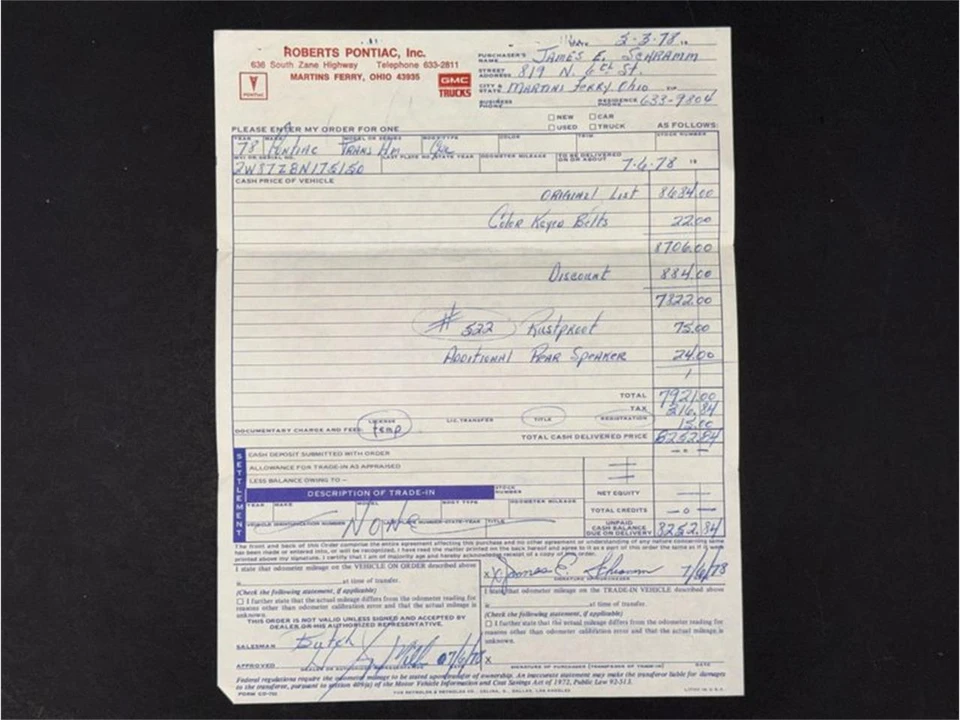 5-3-78 19
ROBERTS PONTIAC, Inc.
636 South Zane Highway Telephone 633-2811
MARTINS FERRY, OHIO 43935
PONTIAC
GMC TRUCKS
PURCHASER'S NAME JAMES E. SCHRAMM
STREET ADDRESS 819 N. 6th St.
CITY & STATE MARTINS FERRY Ohio ZIP
BUSINESS PHONE RESIDENCE PHONE 633-9804
NEW CAR
USED TRUCK
PLEASE ENTER MY ORDER FOR ONE AS FOLLOWS:
YEAR MAKE MODEL OR SERIES BODY TYPE COLOR TRIM STOCK NUMBER
78 PONTIAC TRANS AM
MVI OR SERIAL NO. LAST PLATE NO./STATE YEAR ODOMETER MILEAGE TO BE DELIVERED ON OR ABOUT 7-6-78 19
2W87Z8N175150
CASH PRICE OF VEHICLE
ORIGINAL List 8684.00
Color Keyed Belts 22.00
8706.00
Discount 884.00
7822.00
# 522 Rustproof 75.00
ADDITIONAL REAR SPEAKER 24.00
TOTAL 7921.00
TAX 316.84
DOCUMENTARY CHARGE AND FEES LICENSE temp LIC. TRANSFER TITLE REGISTRATION 15.00
TOTAL CASH DELIVERED PRICE 8252.84
SETTLEMENT
CASH DEPOSIT SUBMITTED WITH ORDER -0-
ALLOWANCE FOR TRADE-IN AS APPRAISED
LESS BALANCE OWING TO —
DESCRIPTION OF TRADE-IN STOCK NUMBER NET EQUITY
YEAR MAKE MODEL BODY TYPE ODOMETER MILEAGE TOTAL CREDITS -0-
VEHICLE IDENTIFICATION NUMBER NUMBER-STATE-YEAR TITLE UNPAID CASH BALANCE DUE ON DELIVERY 8252.84
NONE
The front and back of this Order comprise the entire agreement affecting this purchase and no other agreement or understanding of any nature concerning same
has been made or entered into, or will be recognized. I have read the matter printed on the back hereof and agree to it as a part of this order the same as if it
printed above my signature. I certify that I am of majority age and hereby acknowledge receipt of a copy of this order.
I state that odometer mileage on the VEHICLE ON ORDER described above
at time of transfer.
(Check the following statement, if applicable)
I further state that the actual mileage differs from the odometer reading for
reasons other than odometer calibration error and that the actual mileage is
unknown.
THIS ORDER IS NOT VALID UNLESS SIGNED AND ACCEPTED BY
DEALER OR HIS AUTHORIZED REPRESENTATIVE.
SALESMAN Butch
APPROVED 07/6/78
DEALER OR AUTHORIZED REPRESENTATIVE
X James E. Schramm 7/6/78
SIGNATURE OF PURCHASER
I state that odometer mileage on the TRADE-IN VEHICLE described above
at time of transfer.
(Check the following statement, if applicable)
I further state that the actual mileage differs from the odometer reading for
reasons other than odometer calibration error and that the actual mileage is
unknown.
X
SIGNATURE OF PURCHASER (TRANSFEROR OF TRADE-IN) DATE
Federal regulations require the odometer mileage to be stated upon transfer of ownership. An inaccurate statement may make the transferor liable for damages
to the transferee, pursuant to section 409(a) of the Motor Vehicle Information and Cost Savings Act of 1972, Public Law 92-513.
THE REYNOLDS & REYNOLDS CO., CELINA, O., DALLAS, LOS ANGELES LITHO IN U.S.A.